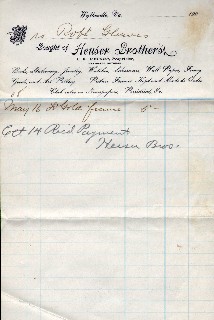 Wytheville, Va. 190
Mr Robt Gleaves
Bought of Heuser Brothers,
Books, Stationery, Jewelry, Watches, Silverware, Wall Paper, Fancy
Goods, and Art Pottery. Picture Frames Kept and Made to Order.
Clubs on Newspapers, Periodicals, Etc.
08
May 16 To Gold frame 5 -
Oct 14 Recd Payment
Heuser Bros.